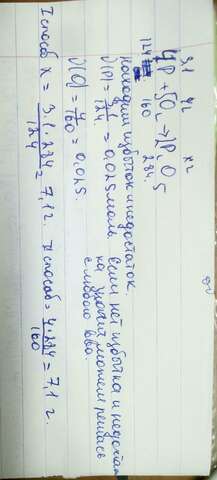 3,1 4г x г
4P + 5O₂ → 2P₂O5
124 160 284.
Находим избыток и недостаток.
ν(P) = 3,1/124 = 0,025 моль
ν(O) = 4/160 = 0,025.
Если нет избытка и недостат
ка значит можем решать
с любого в-ва.
I способ x = 3,1·284/124 = 7,1 г. II способ = 4·284/160 = 7,1 г.